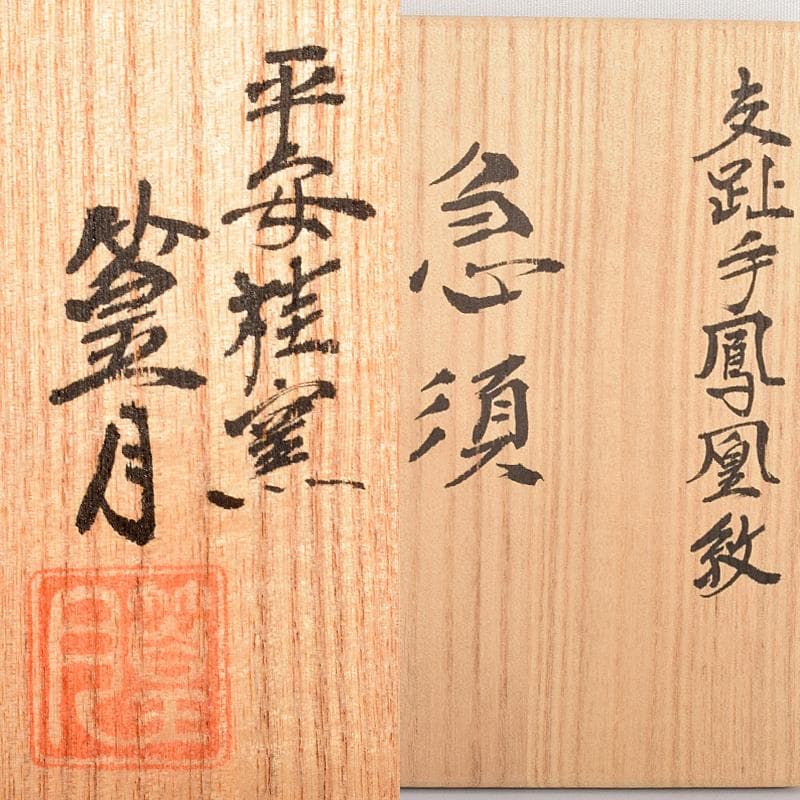 交趾手鳳凰紋
急須
平安桂窯
篁月
篁月